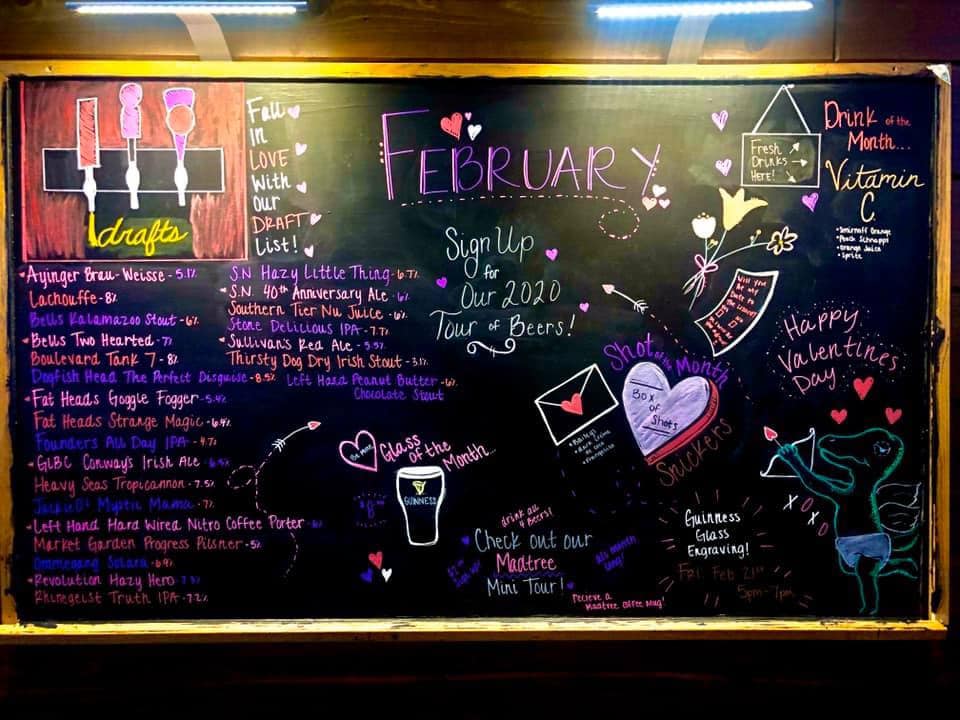 drafts
Fall
in
LOVE
With
Our
DRAFT
List!
FEBRUARY
Fresh
Drinks
Here!
Drink of the
Month...
Vitamin
C.
•Smirnoff Orange
•Peach Schnapps
•Orange Juice
•Sprite
Sign Up
for
Our 2020
Tour of Beers!
Ayinger Brau-Weisse - 5.1%
Lachouffe - 8%
Bells Kalamazoo Stout - 6%
Bells Two Hearted - 7%
Boulevard Tank 7 - 8%
Dogfish Head The Perfect Disguise - 8.5%
Fat Heads Goggle Fogger - 5.4%
Fat Heads Strange Magic - 6.4%
Founders All Day IPA - 4.7%
GLBC Conways Irish Ale - 6.5%
Heavy Seas Tropicannon - 7.5%
Jackie O's Mystic Mama - 7%
Left Hand Hard Wired Nitro Coffee Porter - 6%
Market Garden Progress Pilsner - 5%
Ommegang Solara - 6.9%
Revolution Hazy Hero - 7.3%
Rhinegeist Truth IPA - 7.2%
S.N Hazy Little Thing - 6.7%
S.N. 40th Anniversary Ale - 6%
Southern Tier Nu Juice - 6%
Stone Delicious IPA - 7.7%
Sullivan's Red Ale - 5.5%
Thirsty Dog Dry Irish Stout - 3.1%
Left Hand Peanut Butter - 6%
Chocolate Stout
Be mine
Glass
of the
Month...
GUINNESS
Will you
be my
Date to
Shot of the Month
Box
of
Shots
Snickers
•Baileys
•Dark Creme
de Coco
•Frangelico
Happy
Valentines
Day
X
O
X
O
drink all
4 Beers!
Check out our
Madtree
Mini Tour!
All month
long!
Recieve a
Madtree Coffee Mug!
Guinness
Glass
Engraving!
Fri. Feb 21st
5pm - 7pm